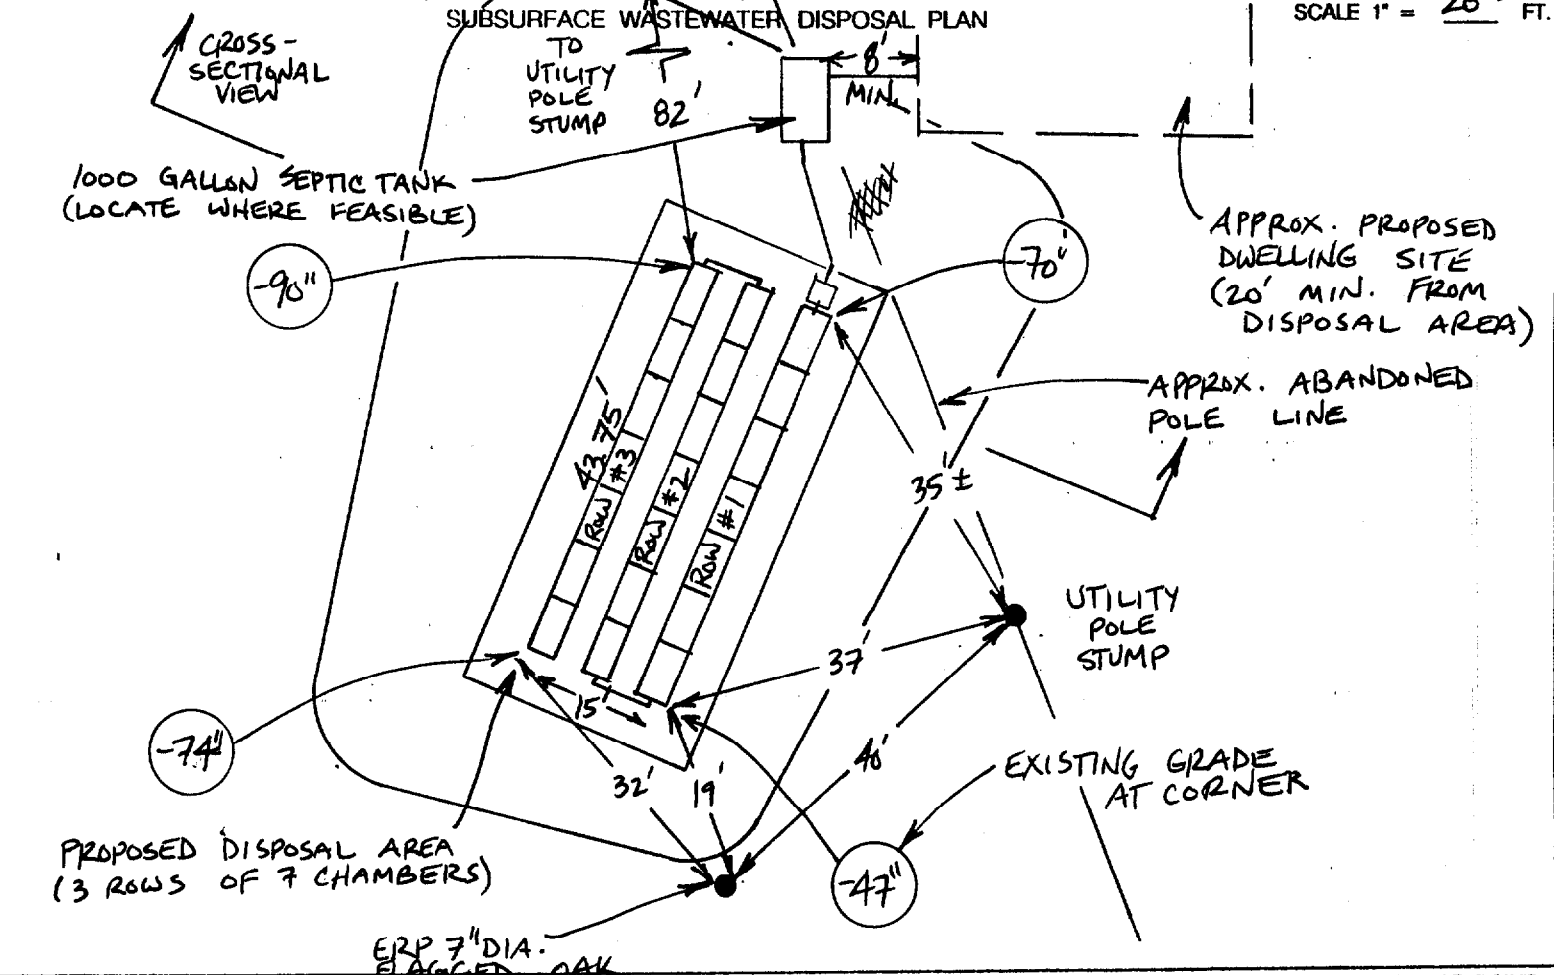 SUBSURFACE WASTEWATER DISPOSAL PLAN
SCALE 1" = 20 FT.
CROSS-
SECTIONAL
VIEW
TO
UTILITY
POLE
STUMP
82'
8'
MIN.
1000 GALLON SEPTIC TANK
(LOCATE WHERE FEASIBLE)
APPROX. PROPOSED
DWELLING SITE
(20' MIN. FROM
DISPOSAL AREA)
-90"
-70"
APPROX. ABANDONED
POLE LINE
43.75'
ROW #3
ROW #2
ROW #1
35'±
UTILITY
POLE
STUMP
37'
15'
-74"
32'
19'
40'
EXISTING GRADE
AT CORNER
PROPOSED DISPOSAL AREA
(3 ROWS OF 7 CHAMBERS)
-47"
ERP 7" DIA.
FLAGGED OAK